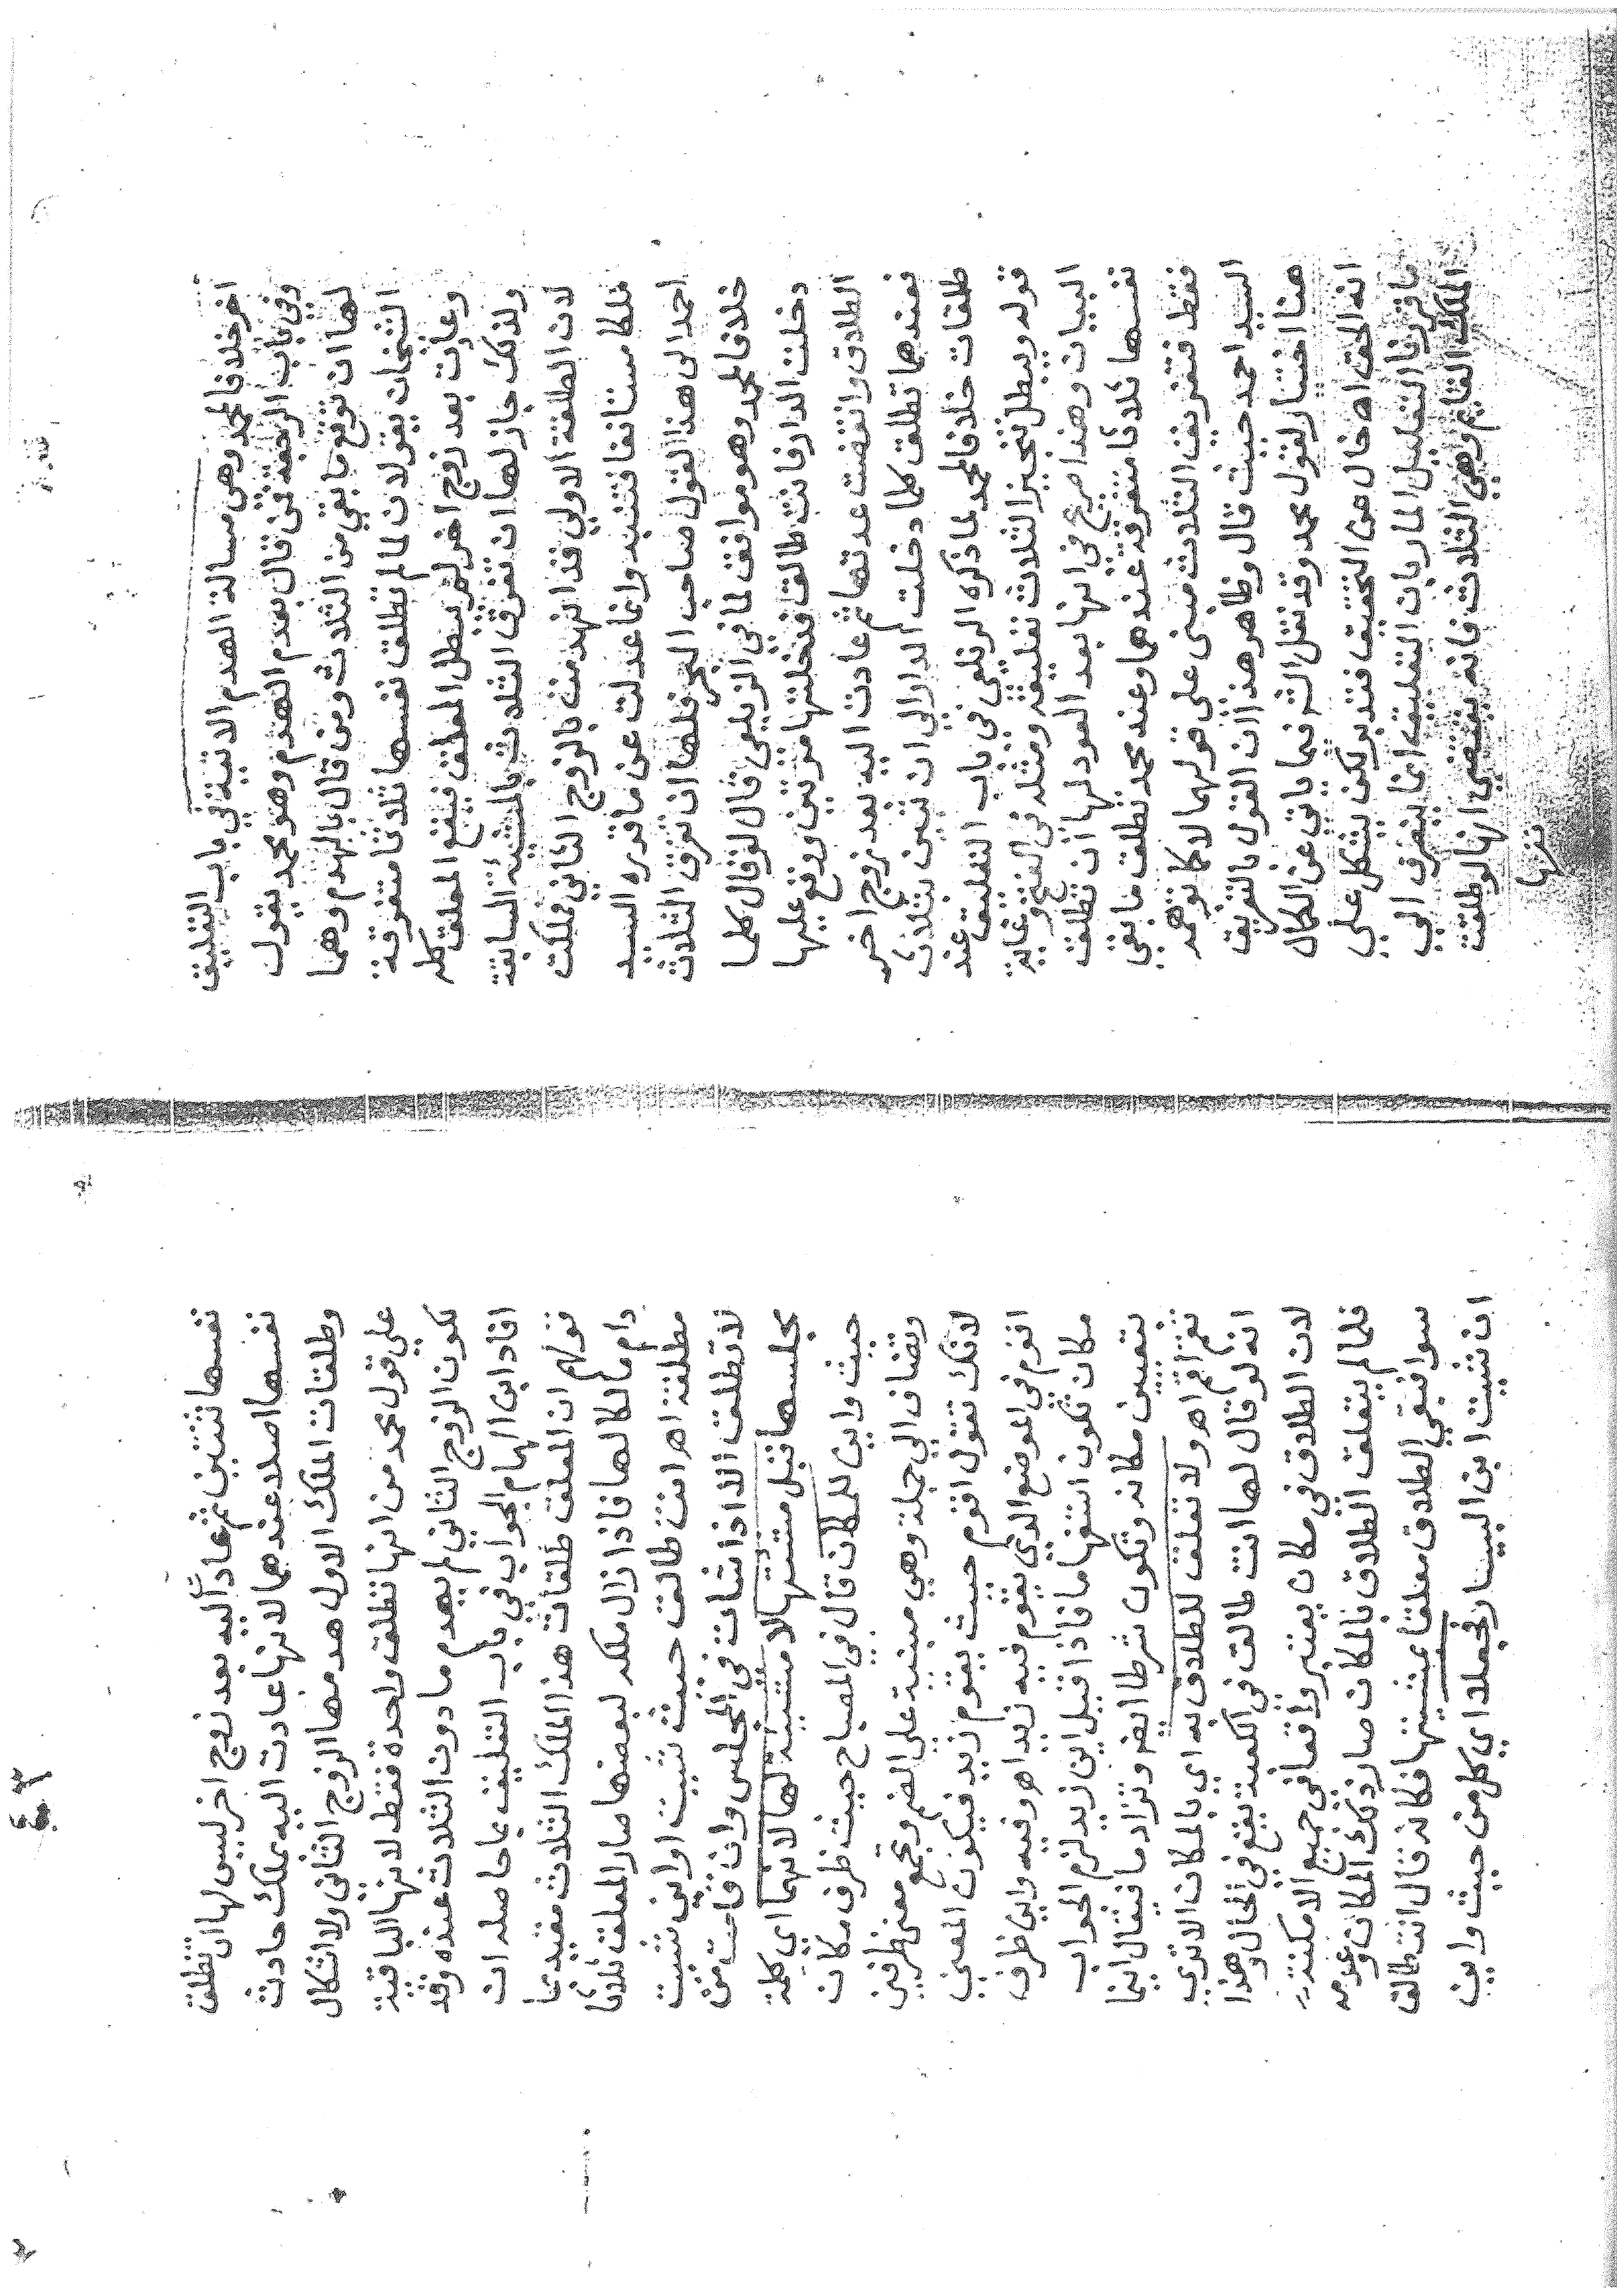 اخر خلافا لمحمد وهي مسالة الهدم الاتية في باب التعليق
وفي باب الرجعة فمن قال بعدم الهدم وهو محمد يقول
لها ان توقع ما بقي من الثلاث ومن قال بالهدم وهما
الشيخان يقولان لما لم تطلق نفسها ثلاثا متفرقة
وعادت بعد زوج اخر لم يبطل المعلق فيقع المعلق كله
ولذلك جاز لها ان تفرق الثلاث بالمشيئة السابقة
لان الطلقة الاولى قد انهدمت بالزوج الثاني فملكت
ملكا مستانفا فتنبه وانما عدلت عن ما قرره السيد
احمد الى هذا القول صاحب البحر فلها ان تفرق الثلاث
خلافا لمحمد وهو موافق لما في الزيلعي قال لو قال كلما
دخلت الدار فانت طالق فدخلتها مرتين ووقع عليها
الطلاق وانقضت عدتها ثم عادت اليه بعد زوج اخر
فعندهما تطلق كلما دخلت الدار الى ان تبين بثلاث
طلقات خلافا لمحمد لما ذكره الزيلعي في باب التعليق عند
قوله ويبطل تنجيز الثلاث تعليقه ومثله في الفتح وغاية
البيان وهذا صريح في انها بعد العود لها ان تطلق
نفسها ثلاثا متفرقة عندهما وعند محمد تطلق ما بقي
فقط فتفريق الثلاث مبني على قولهما لا كما توهمه
السيد احمد حيث قال وظاهر هذا ان القول بالتفريق
هنا اختيار لقول محمد وقد نقل الشر فيما ياتي عن الكمال
انه الحق اهـ خال عن التحقيق فتدبر لكن يشكل على
ما قررنا التعليل المار بان التعليق انما ينصرف الى
الملك القايم وهي الثلاث فانه يقتضي انها لو طلقت
نفسها
نفسها ثنتين ثم عادت اليه بعد زوج اخر ليس لها ان تطلق
نفسها اصلا عندهما لانها عادت اليه بملك حادث
وطلقات الملك الاول هدمها الزوج الثاني ولا اشكال
على قول محمد من انها تطلق واحدة فقط لانها الباقية
لكون الزوج الثاني لم يهدم ما دون الثلاث عنده وقد
افاد ابن الهمام الجواب في باب التعليق بما حاصله ان
قولهم ان المعلق طلقات هذا الملك الثلاث مقيد بما
دام مالكا لها فاذا زال ملكه لبعضها صار المعلق ثلاثا
مطلقة اهـ انت طالق حيث شئت او اين شئت
لا تطلق الا اذا شات في المجلس وان قامت من
مجلسها قبل مشيئتها لا مشيئة لها لانهما اي كلمة
حيث واين للمكان قال في المصباح حيث ظرف مكان
وتضاف الى جملة وهي مبنية على الضم وتجمع معنى ظرفين
لانك تقول اقوم حيث يقوم زيد فيكون المعنى
اقوم في الموضع الذي يقوم فيه زيد اهـ وفيه واين ظرف
مكان تكون استفهاما فاذا قيل اين زيد لزم الجواب
بتعيين مكانه وتكون شرطا ايضا وتزاد ما فيقال اينما
تقم اقم اهـ ولا تعلق للطلاق به اي بالمكان الا ترى
انه لو قال لها انت طالق في الكعبة يقع في الحال وهذا
لان الطلاق في مكان يعتبر واقعا في جميع الامكنة
فلما لم يتعلق الطلاق بالمكان صار ذكر المكان وعدمه
سوا فبقي الطلاق معلقا بمشيئتها فكانه قال انت طالق
ان شئت ابن البيسار فجعلا اي كل من حيث واين